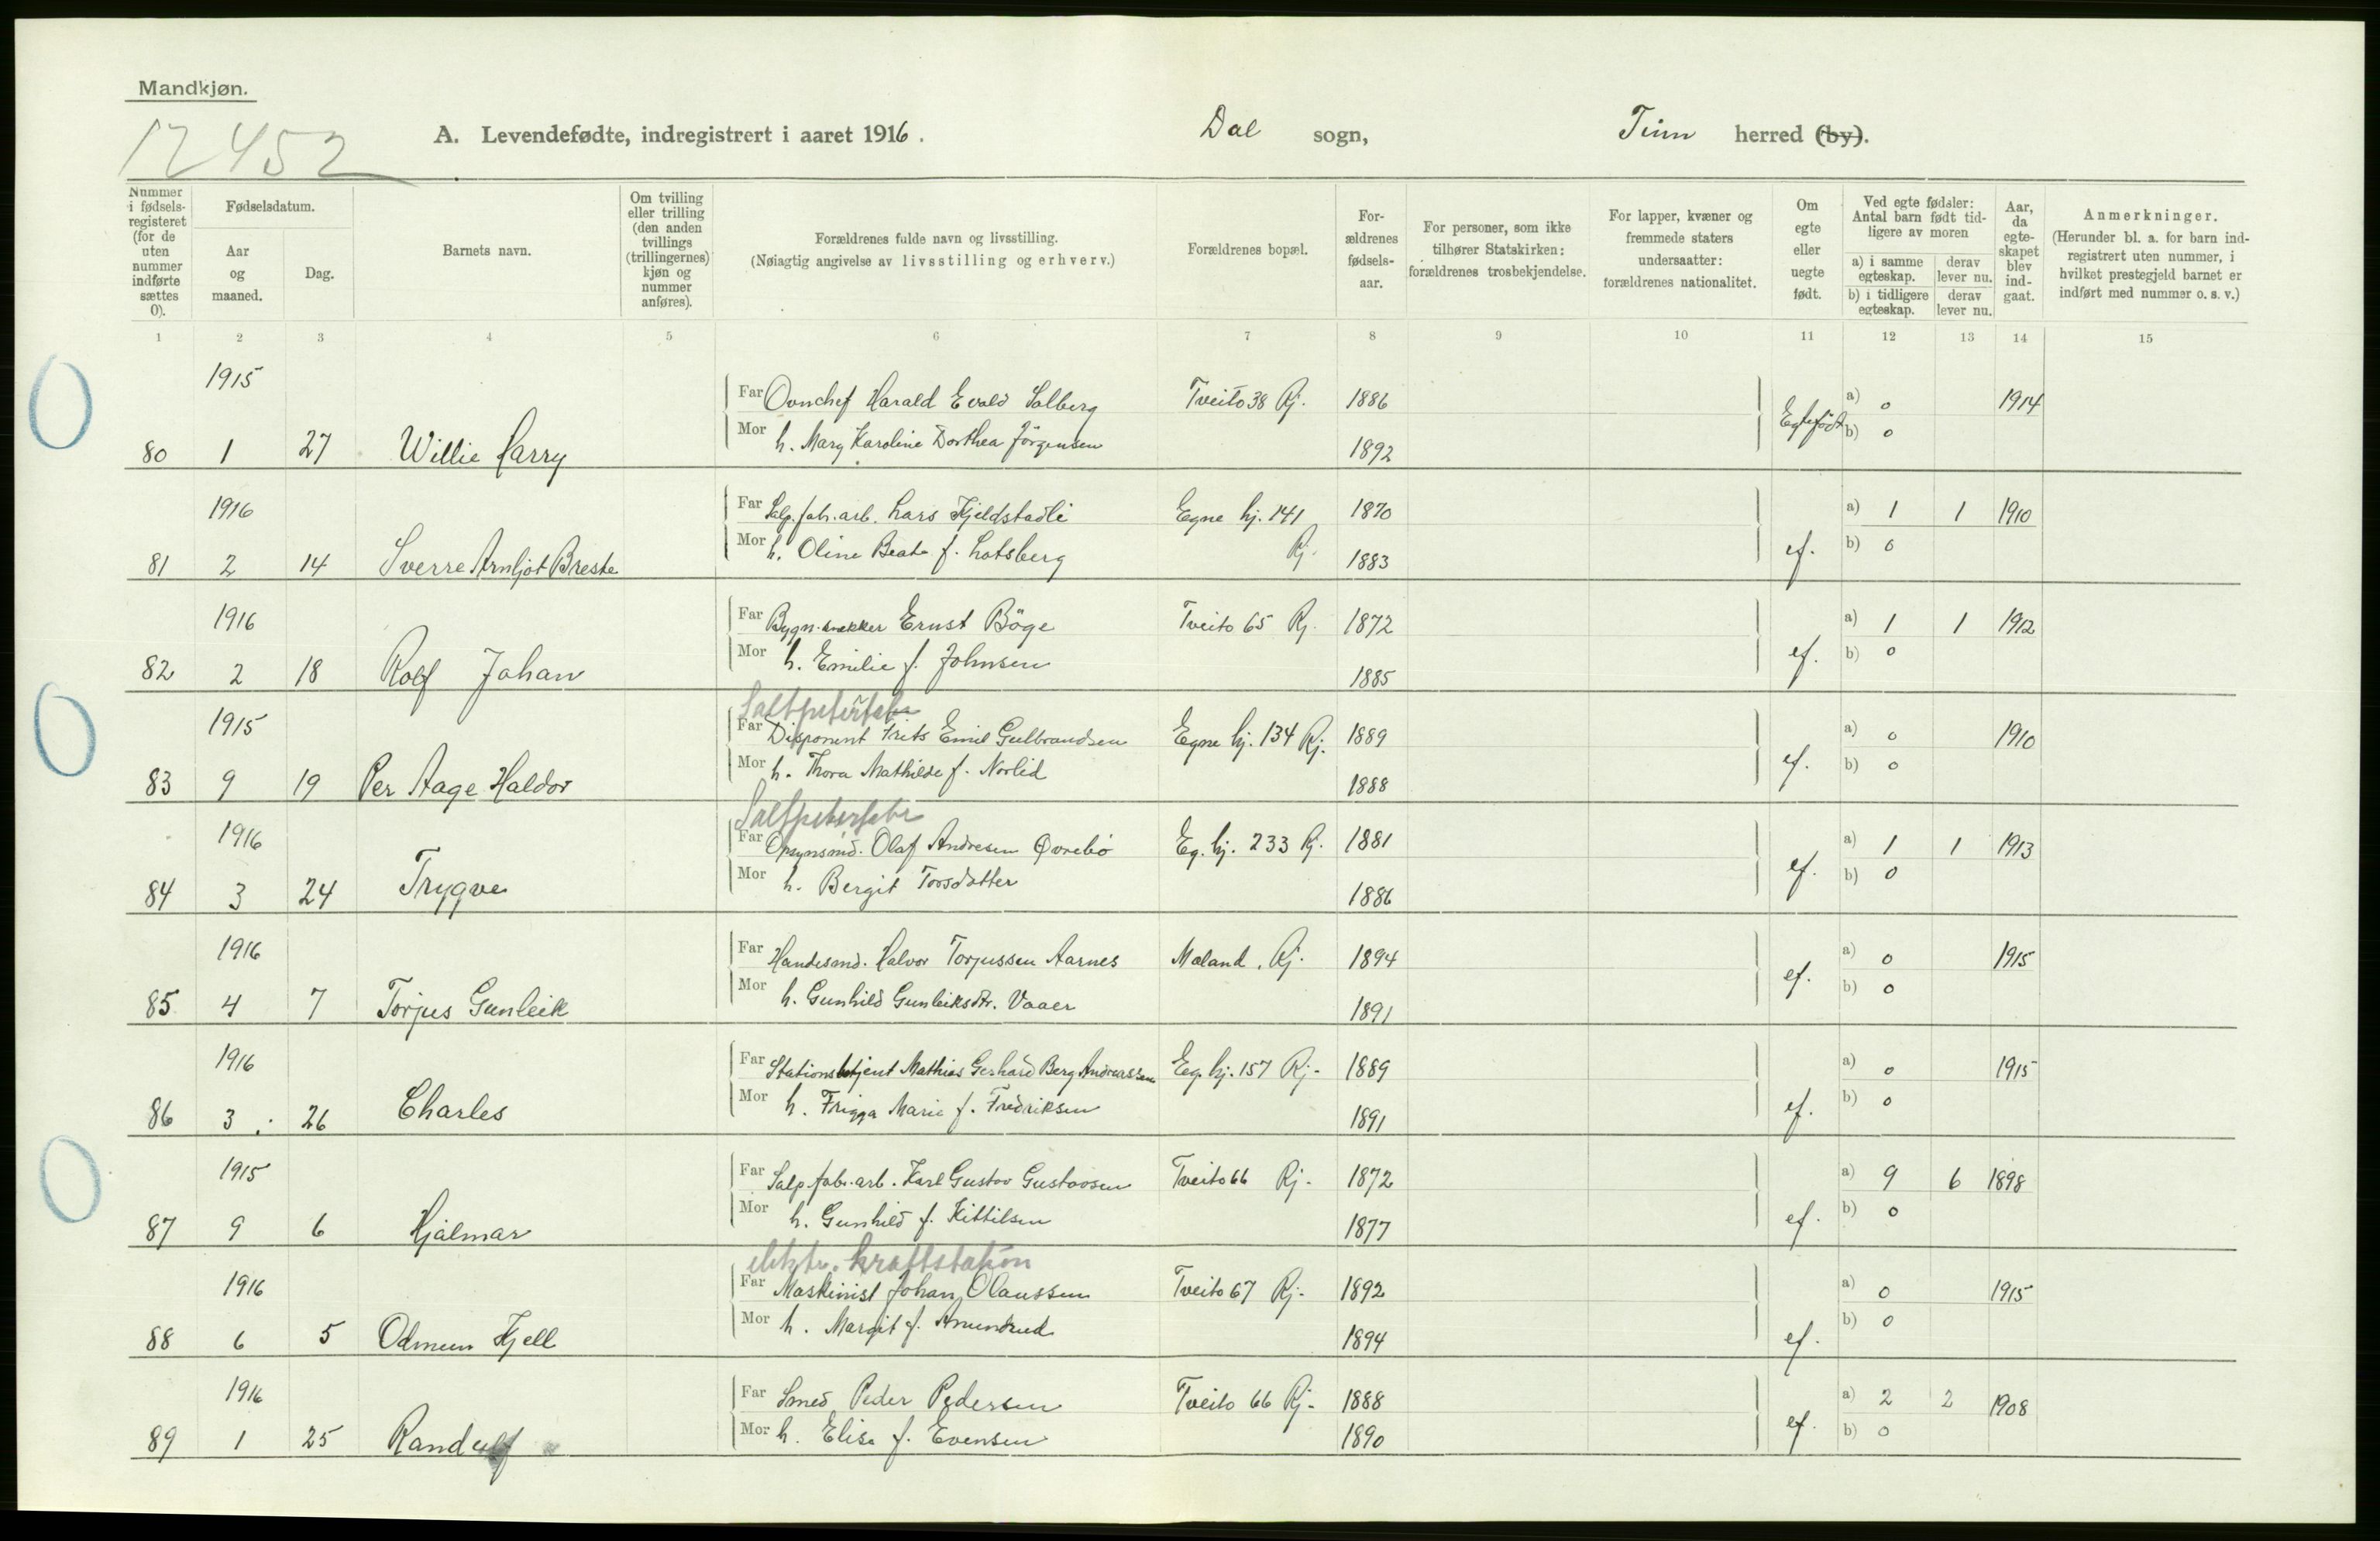 Mandkjøn.
12452
A. Levendefødte, indregistrert i aaret 1916. Dal sogn, Tinn herred (by).
Nummer i fødselsregisteret (for de uten nummer indførte sættes 0).
Fødselsdatum.
Aar og maaned.
Dag.
Barnets navn.
Om tvilling eller trilling (den anden tvillings (trillingernes) kjøn og nummer anføres).
Forældrenes fulde navn og livsstilling.
(Nøiagtig angivelse av livsstilling og erhverv.)
Forældrenes bopæl.
For-ældrenes fødsels-aar.
For personer, som ikke tilhører Statskirken: forældrenes trosbekjendelse.
For lapper, kvæner og fremmede staters undersaatter: forældrenes nationalitet.
Om egte eller uegte født.
Ved egte fødsler: Antal barn født tid-ligere av moren
a) i samme egteskap. derav lever nu.
b) i tidligere egteskap. derav lever nu.
Aar, da egte-skapet blev ind-gaat.
Anmerkninger.
(Herunder bl. a. for barn ind-registrert uten nummer, i hvilket prestegjeld barnet er indført med nummer o. s. v.)
1 2 3 4 5 6 7 8 9 10 11 12 13 14 15
0
1915
Far Ovnchef Harald Evald Salberg Tveito 38 Rj. 1886 Egtefødt a) 0 1914
80 1 27 Willie Harry Mor h. Mary Karoline Dorthea Jörgensen 1892 b) 0
1916
Far Salp.fabr.arb. Lars Kjeldstadli Egne hj. 141 Rj. 1870 a) 1 1 1910
81 2 14 Sverre Arnljot Breste Mor h. Oline Beate f. Lotsberg 1883 ef. b) 0
1916
Far Bygn.snekker Ernst Böge Tveito 65 Rj. 1872 a) 1 1 1912
82 2 18 Rolf Johan Mor h. Emilie f. Johnsen 1885 ef. b) 0
0
Saltpeterfabr
1915
Far Disponent Frits Emil Gulbrandsen Egne hj. 134 Rj. 1889 a) 0 1910
83 9 19 Per Aage Haldor Mor h. Thora Mathilde f. Norlid 1888 ef. b) 0
Saltpeterfabr
1916
Far Opsynsmd. Olaf Andresen Øvrebö Eg. hj. 233 Rj. 1881 a) 1 1 1913
84 3 24 Trygve Mor h. Bergit Torsdatter 1886 ef. b) 0
1916
Far Handesmd. Halvor Torjussen Aarnes Mæland. Rj. 1894 a) 0 1915
85 4 7 Torjus Gunleik Mor h. Gunhild Gunleiksdtr. Vaaer 1891 ef. b) 0
1916
Far Stationsbetjent Mathias Gerhard Berg Andreassen Eg. hj. 157 Rj. 1889 a) 0 1915
86 3 26 Charles Mor h. Frigga Marie f. Fredriksen 1891 ef. b) 0
0
1915
Far Salp.fabr.arb. Karl Gustav Gustavsen Tveito 66 Rj. 1872 a) 9 6 1898
87 9 6 Hjalmar Mor h. Gunhild f. Kittilsen 1877 ef. b) 0
elektr. kraftstation
1916
Far Maskinist Johan Olaussen Tveito 67 Rj. 1892 a) 0 1915
88 6 5 Odmun Kjell Mor h. Margit f. Amundrud 1894 ef. b) 0
1916
Far Smed Peder Pedersen Tveito 66 Rj. 1888 a) 2 2 1908
89 1 25 Randulf Mor h. Elise f. Evensen 1890 ef. b) 0